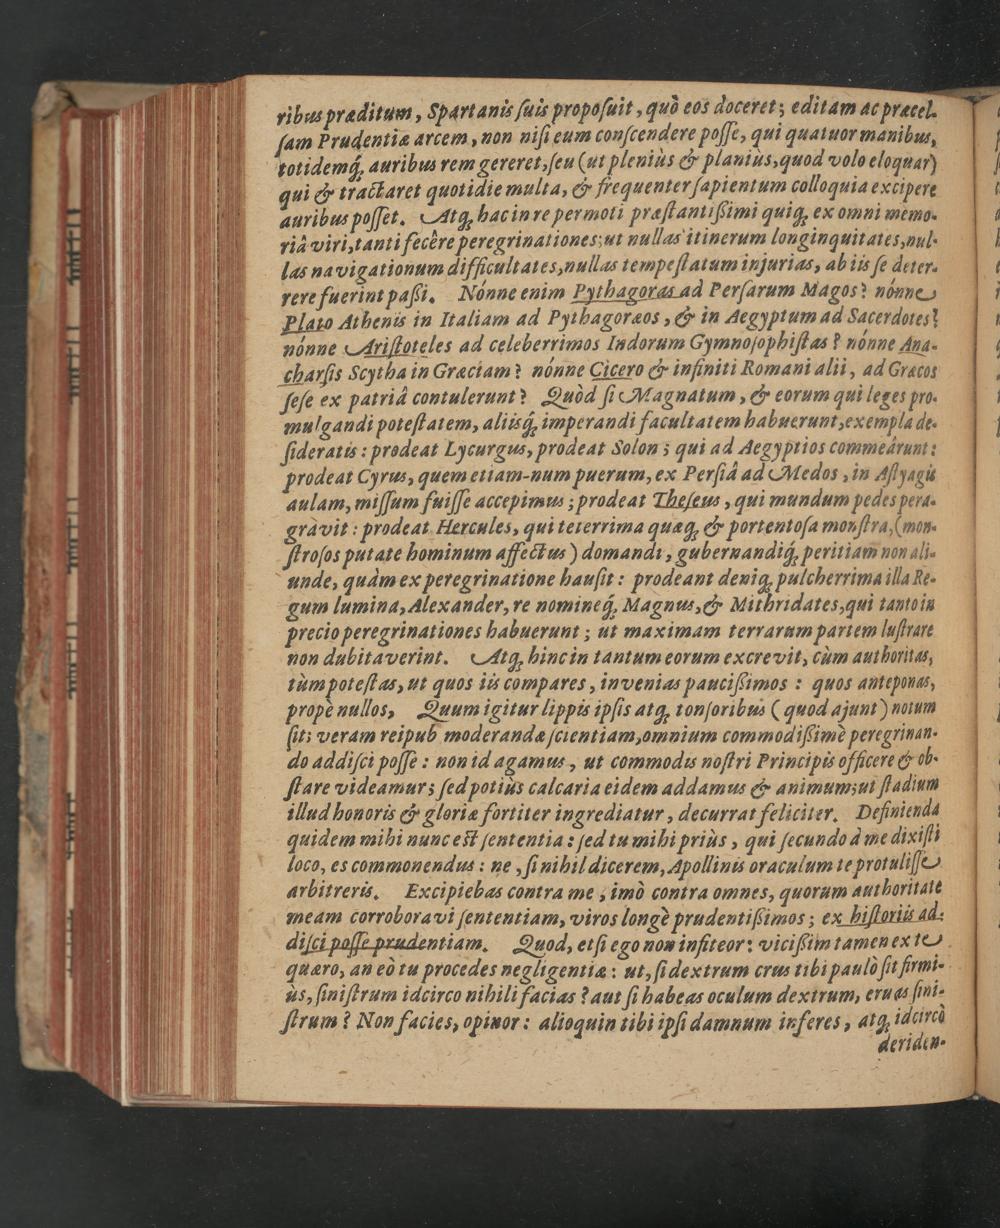 ribus præditum, Spartanis ſuis propoſuit, quò eos doceret; editam ac præcel-
ſam Prudentiæ arcem, non niſi eum conſcendere poſſe, qui quatuor manibus,
totidemq́; auribus rem gereret, ſeu (ut pleniùs & planiùs, quod volo eloquar)
qui & tractaret quotidie multa, & frequenter ſapientum colloquia excipere
auribus poſſet. Atq; hac in re permoti præſtantißimi quiq; ex omni memo-
riâ viri, tanti fecêre peregrinationes; ut nullas itinerum longinquitates, nul-
las navigationum difficultates, nullas tempeſtatum injurias, ab iis ſe deter-
rere fuerint paßi. Nónne enim Pythagoras ad Perſarum Magos? nónne
Plato Athenis in Italiam ad Pythagoræos, & in Aegyptum ad Sacerdotes?
nónne Ariſtoteles ad celeberrimos Indorum Gymnoſophiſtas? nónne Ana-
charſis Scytha in Græciam? nónne Cicero & infiniti Romani alii, ad Græcos
ſeſe ex patriâ contulerunt? Quòd ſi Magnatum, & eorum qui leges pro-
mulgandi poteſtatem, aliisq́; imperandi facultatem habuerunt, exempla de-
ſideratis: prodeat Lycurgus, prodeat Solon; qui ad Aegyptios commeârunt:
prodeat Cyrus, quem etiam-num puerum, ex Perſiâ ad Medos, in Aſtyagis
aulam, miſſum fuiſſe accepimus; prodeat Theſeus, qui mundum pedes pera-
gràvit: prodeat Hercules, qui teterrima quæq; & portentoſa monſtra, (mon-
ſtroſos putate hominum affectus) domandi, gubernandiq́; peritiam non ali-
unde, quàm ex peregrinatione hauſit: prodeant deniq; pulcherrima illa Re-
gum lumina, Alexander, re nomineq́; Magnus, & Mithridates, qui tanto in
precio peregrinationes habuerunt; ut maximam terrarum partem luſtrare
non dubitaverint. Atq; hinc in tantum eorum excrevit, cùm authoritas,
tùm poteſtas, ut quos iis compares, invenias paucißimos: quos anteponas,
propè nullos. Quum igitur lippis ipſis atq; tonſoribus (quod ajunt) notum
ſit; veram reipub moderandæ ſcientiam, omnium commodißimè peregrinan-
do addiſci poſſe: non id agamus, ut commodis noſtri Principis officere & ob-
ſtare videamur; ſed potiùs calcaria eidem addamus & animum; ut ſtadium
illud honoris & gloriæ fortiter ingrediatur, decurrat feliciter. Definienda
quidem mihi nunc eſt ſententia: ſed tu mihi priùs, qui ſecundo à me dixiſti
loco, es commonendus: ne, ſi nihil dicerem, Apollinis oraculum te protuliſſe
arbitreris. Excipiebas contra me, imò contra omnes, quorum authoritate
meam corroboravi ſententiam, viros longè prudentißimos; ex hiſtoriis ad-
diſci poſſe prudentiam. Quod, etſi ego non infiteor: vicißim tamen ex te
quæro, an eò tu procedes negligentiæ: ut, ſi dextrum crus tibi paulò ſit firmi-
ùs, ſiniſtrum idcirco nihili facias? aut ſi habeas oculum dextrum, eruas ſini-
ſtrum? Non facies, opinor: alioquin tibi ipſi damnum inferes, atq; idcircò
deriden-